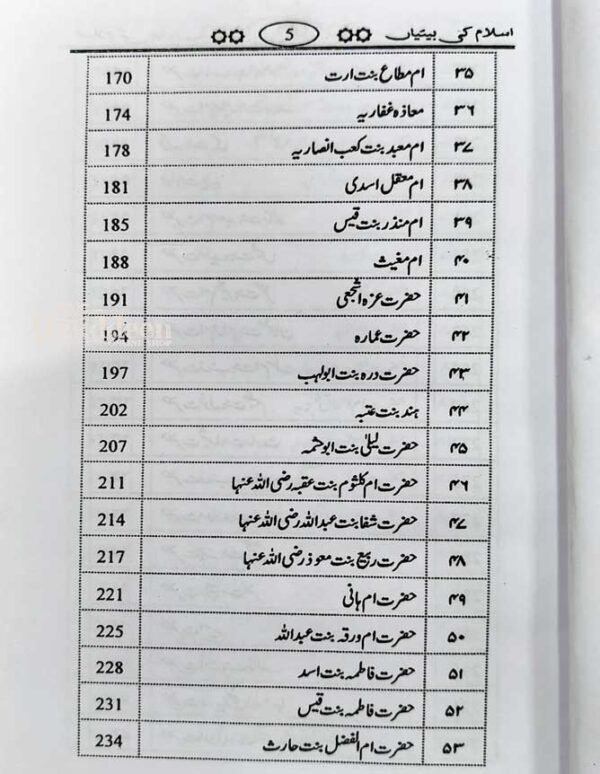 اسلام کی بیٹیاں 5
۳۵ ام مطاع بنت ارت 170
۳۶ معاذہ غفاریہ 174
۳۷ ام معبد بنت کعب انصاریہ 178
۳۸ ام معقل اسدی 181
۳۹ ام منذر بنت قیس 185
۴۰ ام مغیث 188
۴۱ حضرت عزہ اشجعی 191
۴۲ حضرت عمارہ 194
۴۳ حضرت درہ بنت ابولہب 197
۴۴ ہند بنت عتبہ 202
۴۵ حضرت لیلیٰ بنت ابوحثمہ 207
۴۶ حضرت ام کلثوم بنت عقبہ رضی اللہ عنہا 211
۴۷ حضرت شفا بنت عبداللہ رضی اللہ عنہا 214
۴۸ حضرت ربیع بنت معوذ رضی اللہ عنہا 217
۴۹ حضرت ام ہانی 221
۵۰ حضرت ام ورقہ بنت عبداللہ 225
۵۱ حضرت فاطمہ بنت اسد 228
۵۲ حضرت فاطمہ بنت قیس 231
۵۳ حضرت ام الفضل بنت حارث 234